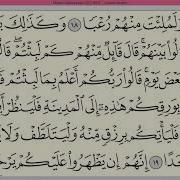 لَمُلِئْتَ مِنْهُمْ رُعْبًا ١٨ وَكَذَٰلِكَ
بَيْنَهُمْ ۚ قَالَ قَآئِلٌ مِّنْهُمْ كَمْ لَبِثْتُمْ ۖ
بَعْضَ يَوْمٍ ۚ قَالُوا۟ رَبُّكُمْ أَعْلَمُ بِمَا لَبِثْتُمْ
بِوَرِقِكُمْ هَٰذِهِۦٓ إِلَى ٱلْمَدِينَةِ فَلْيَنظُرْ
فَلْيَأْتِكُم بِرِزْقٍ مِّنْهُ وَلْيَتَلَطَّفْ وَلَا
١٩ إِنَّهُمْ إِن يَظْهَرُوا۟ عَلَيْكُمْ